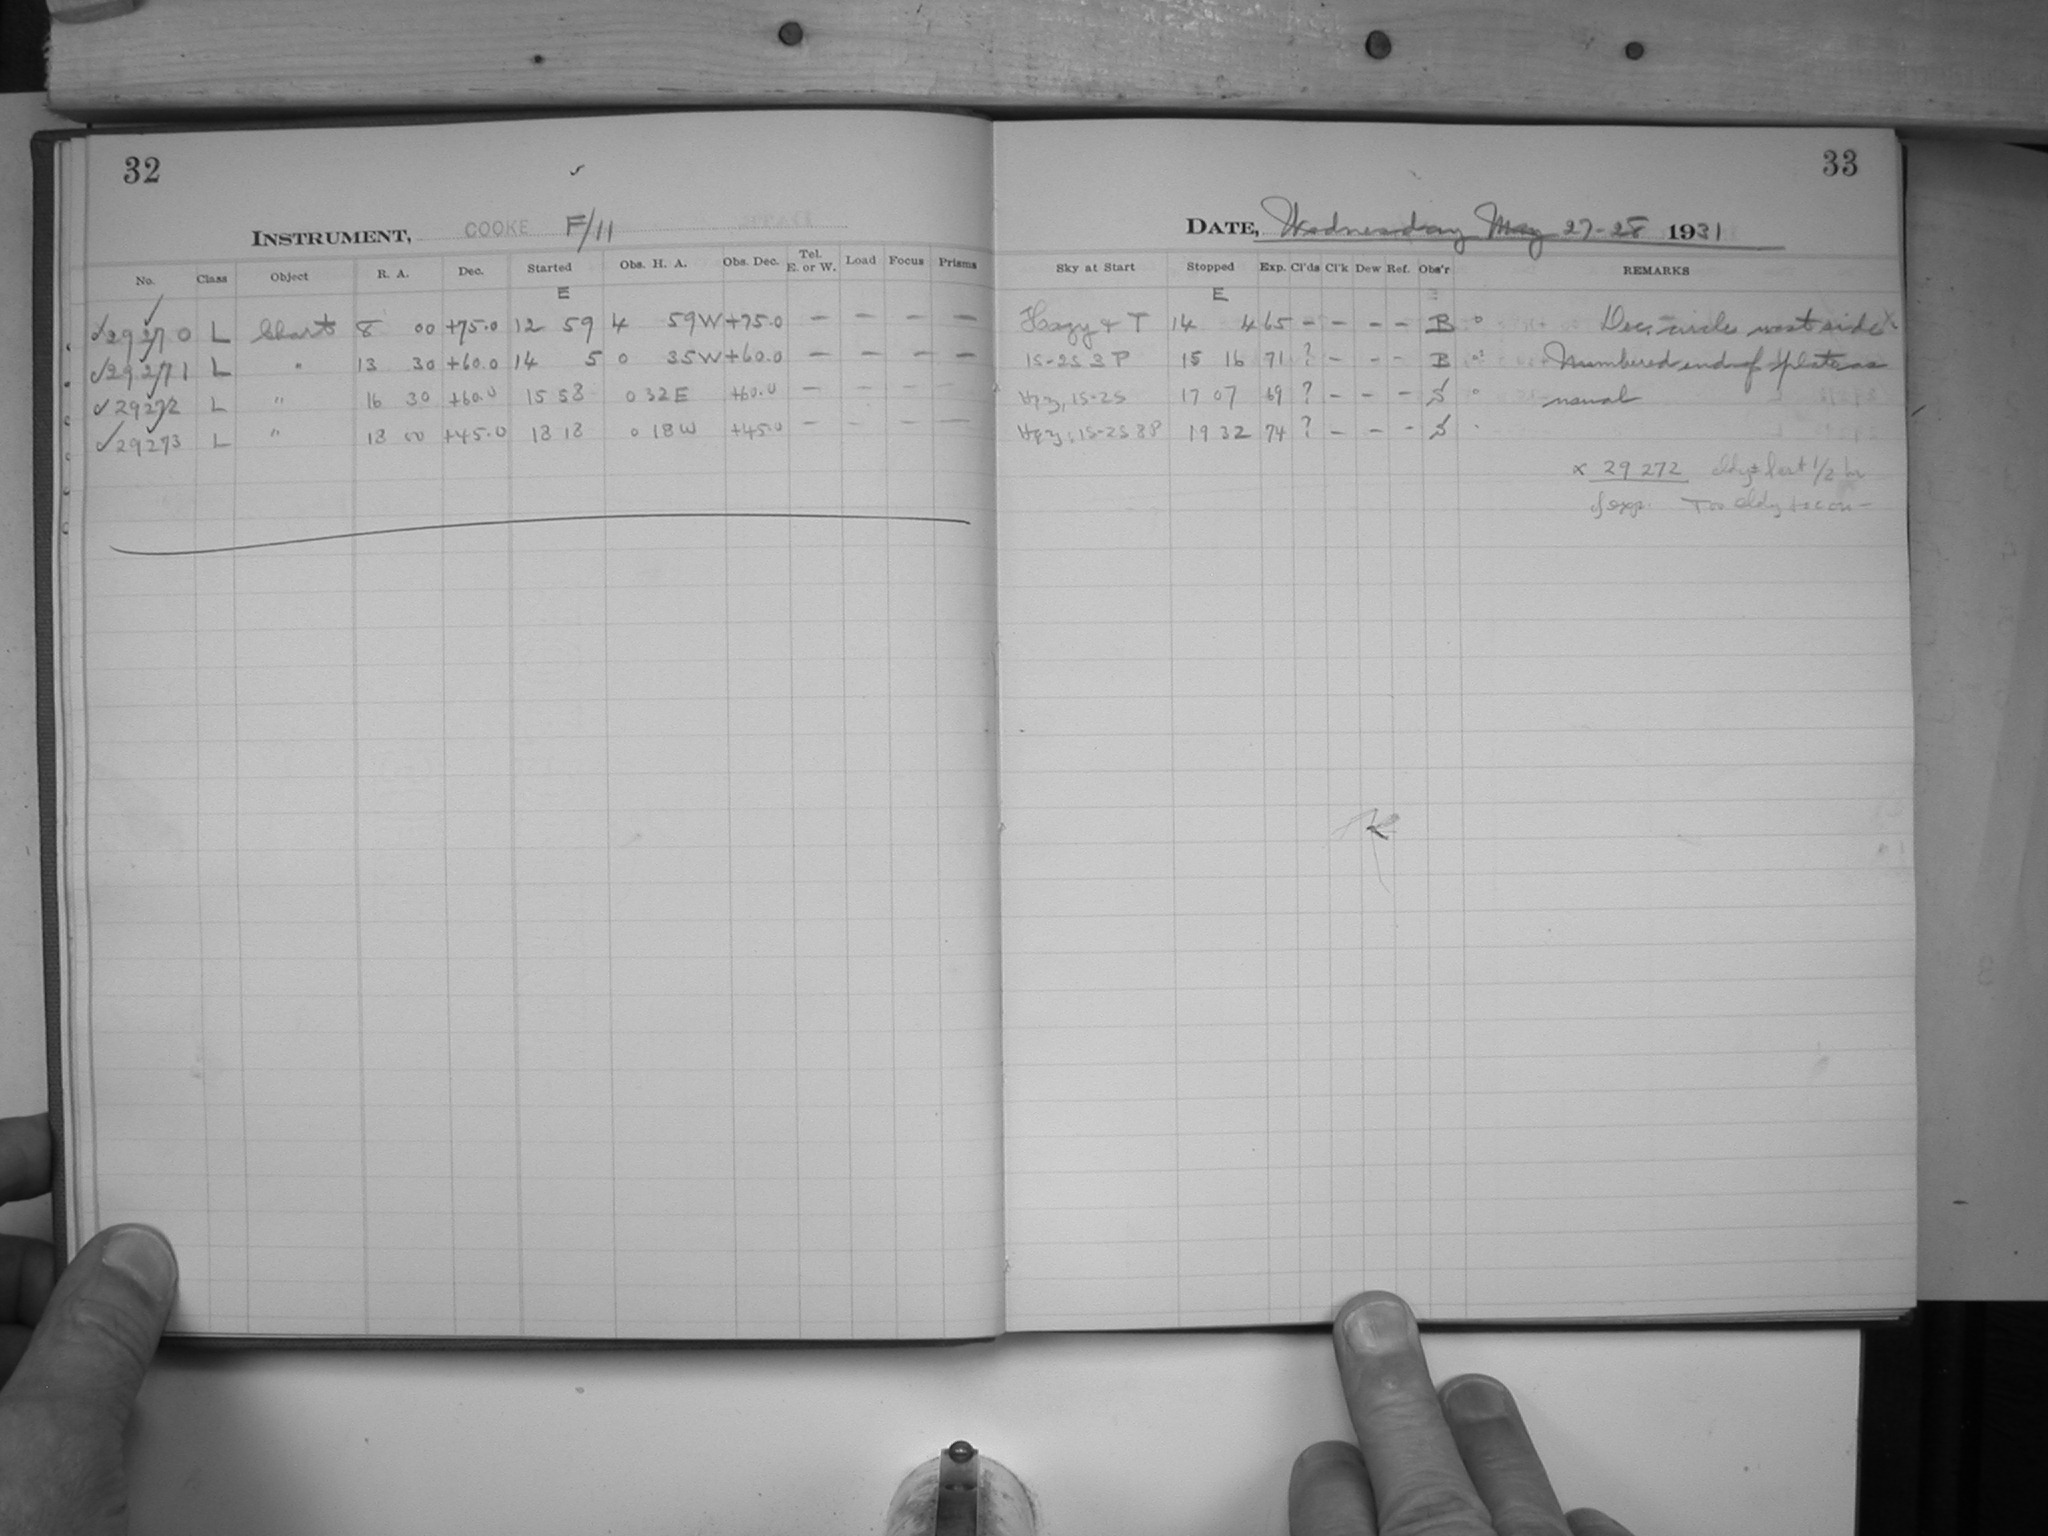 32
INSTRUMENT, COOKE F/11
No. Class Object R. A. Dec. Started Obs. H. A. Obs. Dec. Tel. E. or W. Load Focus Prisms
E
✓29270 L Chart 8 00 +75.0 12 59 4 59W +75.0 — — — —
✓29271 L " 13 30 +60.0 14 5 0 35W +60.0 — — — —
✓29272 L " 16 30 +60.0 15 58 0 32E +60.0 — — — —
✓29273 L " 18 00 +45.0 18 18 0 18W +45.0 — — — —
33
DATE, Wednesday May 27-28 1931
Sky at Start Stopped Exp. Cl'ds Cl'k Dew Ref. Obs'r REMARKS
E
Hazy & T 14 4 65 — — — — B Dec. circles west side
1S-2S 3P 15 16 71 ? — — — B Numbered end of plate as
Hzy, 1S-2S 17 07 69 ? — — — S usual
Hzy, 1S-2S 8P 19 32 74 ? — — — S
x 29272 cldy last 1/2 hr
of exp. Too cldy to con—